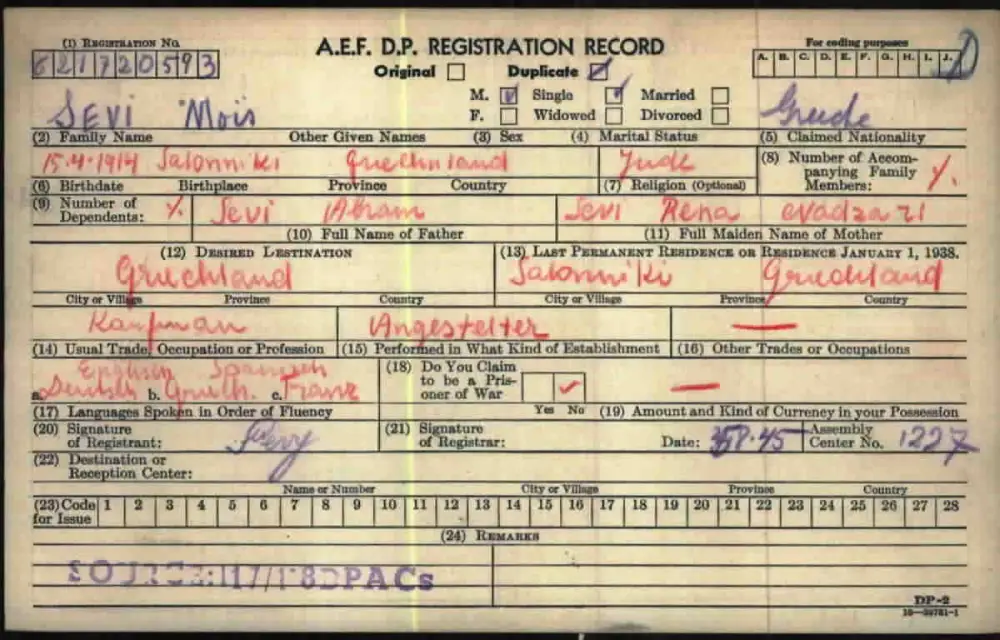 (1) REGISTRATION NO.
A.E.F. D.P. REGISTRATION RECORD
For coding purposes
621720593
Original ☐ Duplicate ☑
A. B. C. D. E. F. G. H. I. J.
M. ☑ Single ☑ Married ☐
F. ☐ Widowed ☐ Divorced ☐
SEVI Mois
(2) Family Name Other Given Names (3) Sex (4) Marital Status (5) Claimed Nationality
15.4.1914 Salonniki Griechnland Jude
(8) Number of Accompanying Family Members: %.
(6) Birthdate Birthplace Province Country (7) Religion (Optional)
(9) Number of Dependents: %. Sevi Abram Sevi Rena
(10) Full Name of Father (11) Full Maiden Name of Mother
(12) DESIRED DESTINATION (13) LAST PERMANENT RESIDENCE OR RESIDENCE JANUARY 1, 1938.
Griechland Salonniki Griechland
City or Village Province Country City or Village Province Country
Kaufman Angestelter —
(14) Usual Trade, Occupation or Profession (15) Performed in What Kind of Establishment (16) Other Trades or Occupations
English Spanisch
a. Deutsch b. Griech. c. Franz
(18) Do You Claim to be a Prisoner of War ✓ —
Yes No
(17) Languages Spoken in Order of Fluency (19) Amount and Kind of Currency in your Possession
(20) Signature of Registrant: (21) Signature of Registrar: Date: Assembly Center No. 1227
(22) Destination or Reception Center:
Name or Number City or Village Province Country
(23) Code for Issue 1 2 3 4 5 6 7 8 9 10 11 12 13 14 15 16 17 18 19 20 21 22 23 24 25 26 27 28
(24) REMARKS
SOURCE: 117/18DPACs
DP-2